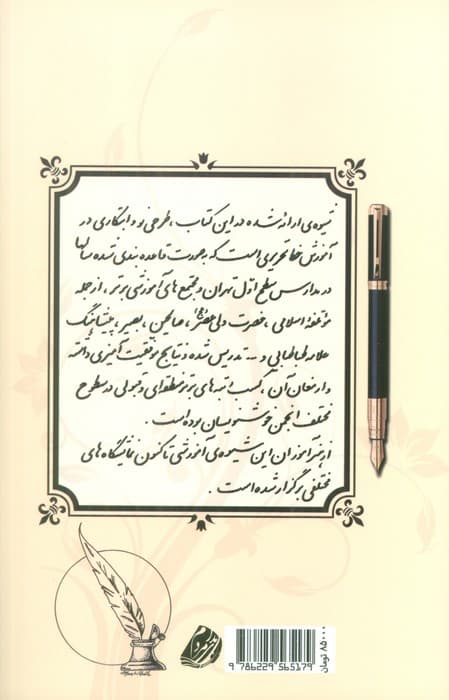 شیوه‌ی ارائه شده در این کتاب، طرحی نو و ابتکاری در
آموزش خط تحریری است که به صورت قاعده بندی شده سالها
در مدارس سطح اول تهران و مجتمع های آموزشی برتر، از جمله
مؤتلفهٔ اسلامی، حضرت ولی عصر، صالحین، بصیر،
علامه طباطبایی و ... تدریس شده و نتایج موفقیت آمیزی داشته
و ارمغان آن، کسب رتبه های برتر منطقه ای و قبولی در سطوح
مختلف انجمن خوشنویسان بوده است.
از هنرآموزان این شیوه‌ی آموزشی تاکنون نمایشگاه های
مختلفی برگزار شده است.
۸۵۰۰۰ تومان
9 786229 565179